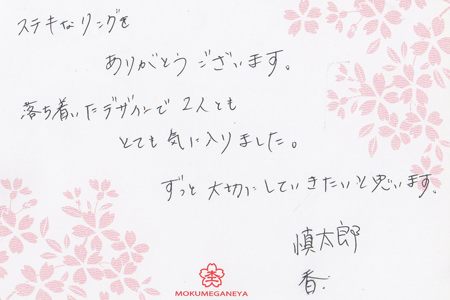 ステキなリングを
ありがとうございます。
落ち着いたデザインで2人とも
とても気に入りました。
ずっと大切にしていきたいと思います。
慎太郎
香
MOKUMEGANEYA